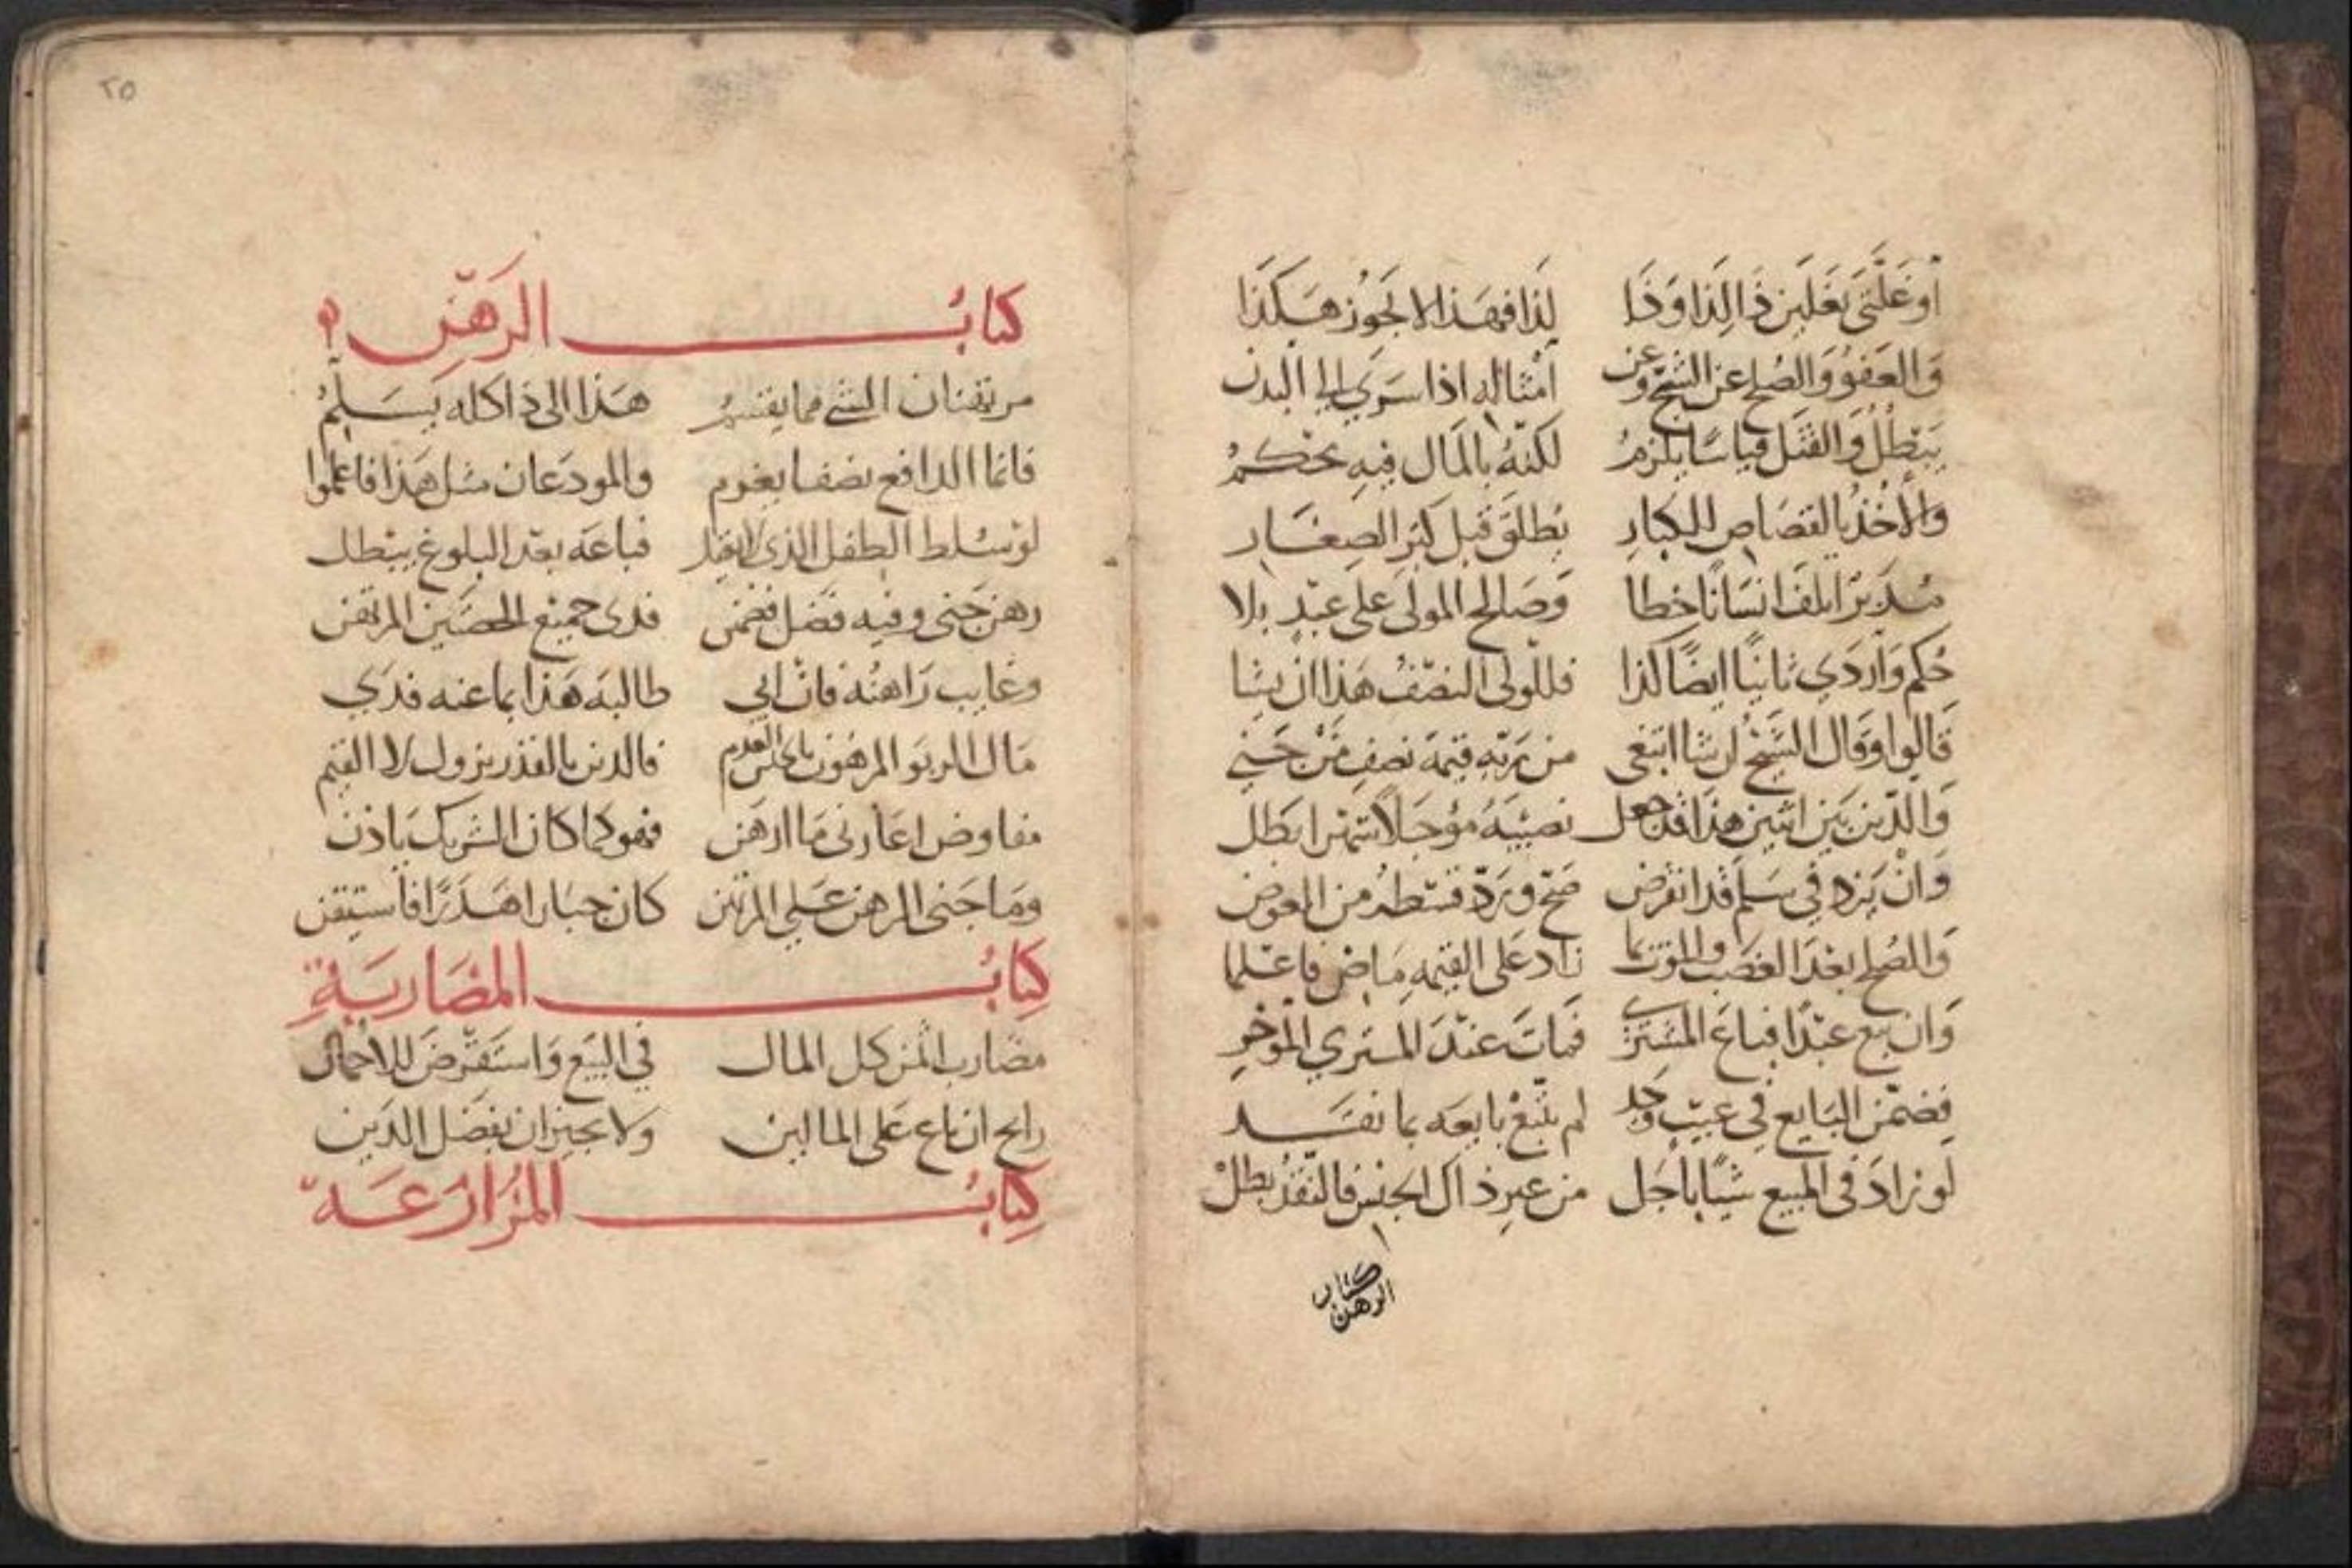 أو غلتي بغلين ذا لذا وذا لذا فهذا لا يجوز هكذا
والعفو والصلح عن الشج وعن أمثاله اذا سرى الى البدن
يبطل والقتل قياسا يلزم لكنه بالمال فيه يحكم
والأخذ بالقصاص للكبار يطلق قبل كبر الصغار
مدبر اتلف انسانا خطا وصالح المولى على عبد بلا
حكم وأردى ثانيا ايضا كذا فللولى النصف هذا ان يشا
قالوا وقال الشيخ ان شا ابتغى من ربه قيمة نصف من جني
والدين بين اثنين هذا قد جعل نصيبه مؤجلا شهرا بطل
وان يزد في سلم قد انقرض صح ويرد قسطه من العوض
والصلح بعد الغصب والموت بما زاد على القيمه ماض فاعلما
وان بيع عبدا فباع المشتري فمات عند المشتري المؤخر
فضمن البايع في عيب وجد لم يتبع بايعه بما نقد
لو زاد في المبيع شيا بأجل من غير ذاك الجنس فالنقد بطل
كتاب
الرهن
٢٥
كتاب الرهن
مرتهنان الشى مما يقسم هذا الى ذا كله يسلم
فانما الدافع نصفا يغرم والمودعان مثل هذا فاعلموا
لو سلط الطفل الذي لا يعقل فباعه بعد البلوغ يبطل
رهن جنى وفيه فضل فضمن فدى جميع الحصتين المرتهن
وغايب راهنه فان ابي طالبه هذا بما عنه فدي
مال الربو المرهون فالدين بالقدر يزول لا القيم
مفاوض اعارنى ما ارهن فهو كما كان الشريك يأذن
وما جنى الرهن على المرتهن كان جبارا هدرا فاستيقن
كتاب المضاربة
مضارب الثمن كل المال في البيع واستقرض للاحمال
رابح ان باع على المالين ولا يجيز ان بفضل الدين
كتاب المزارعة